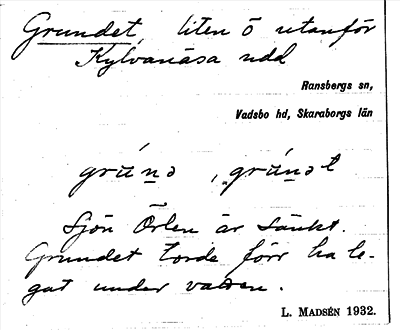 Grundet, liten ö utanför
Kylvanäsa udd
Ransbergs sn,
Vadsbo hd, Skaraborgs län
Sjön Örlen är sänkt.
Grundet torde förr ha le-
gat under vatten.
L. MADSÉN 1932.